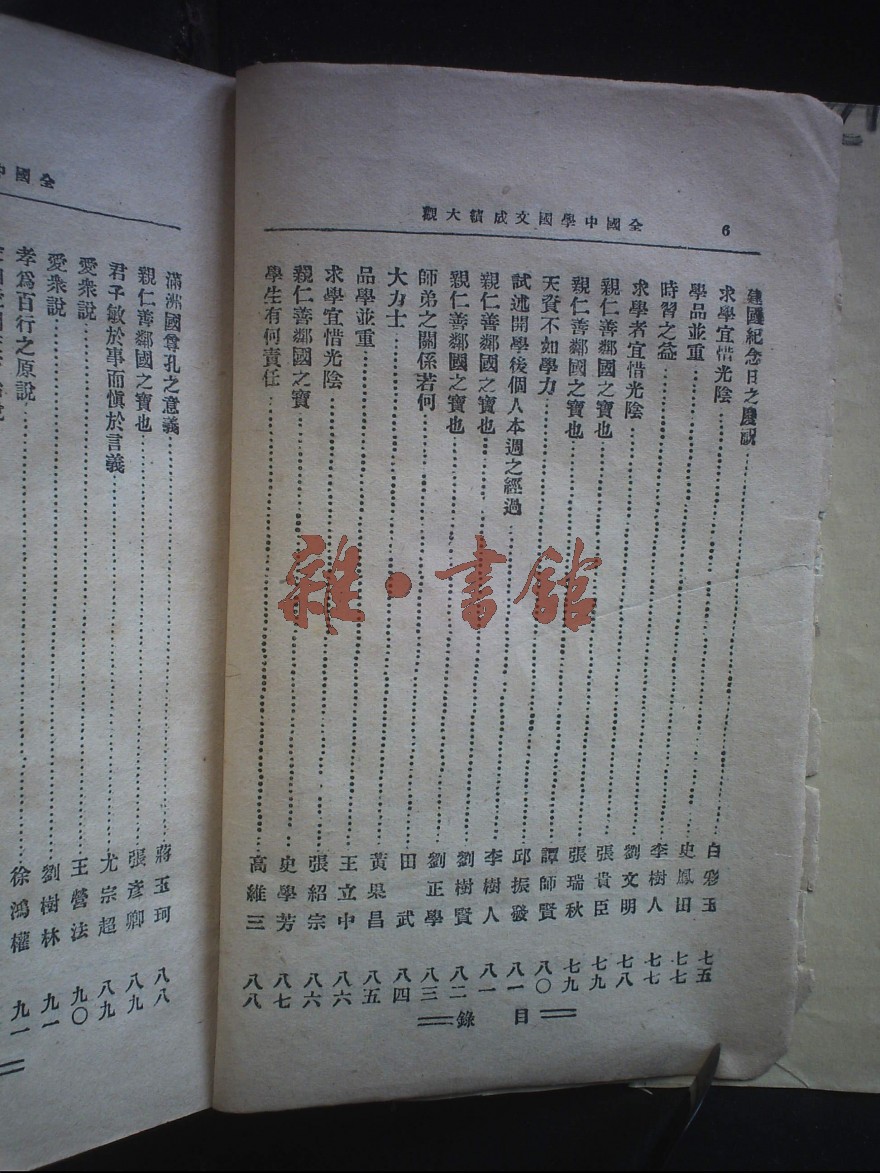 6
全國中學國文成績大觀
建國紀念日之慶祝……白彩玉 七五
求學宜惜光陰……史鳳田 七七
學品並重……李樹人 七七
時習之益……劉文明 七八
求學者宜惜光陰……張貴臣 七九
親仁善鄰國之寶也……張瑞秋 七九
親仁善鄰國之寶也……譚師賢 八〇
天資不如學力……邱振發 八一
試述開學後個人本週之經過……李樹人 八一
親仁善鄰國之寶也……劉樹賢 八二
親仁善鄰國之寶也……劉正學 八三
師弟之關係若何……田武 八四
大力士……黃果昌 八五
品學並重……王立中 八六
求學宜惜光陰……張紹宗 八六
親仁善鄰國之寶……史學芳 八七
學生有何責任……高維三 八八
目錄
全國中
滿洲國尊孔之意義……蔣玉珂 八八
親仁善鄰國之寶也……張彥卿 八九
君子敏於事而愼於言義……尤宗超 八九
愛衆說……王營法 九〇
愛衆說……劉樹林 九一
孝爲百行之原說……徐鴻權 九一
雜·書館